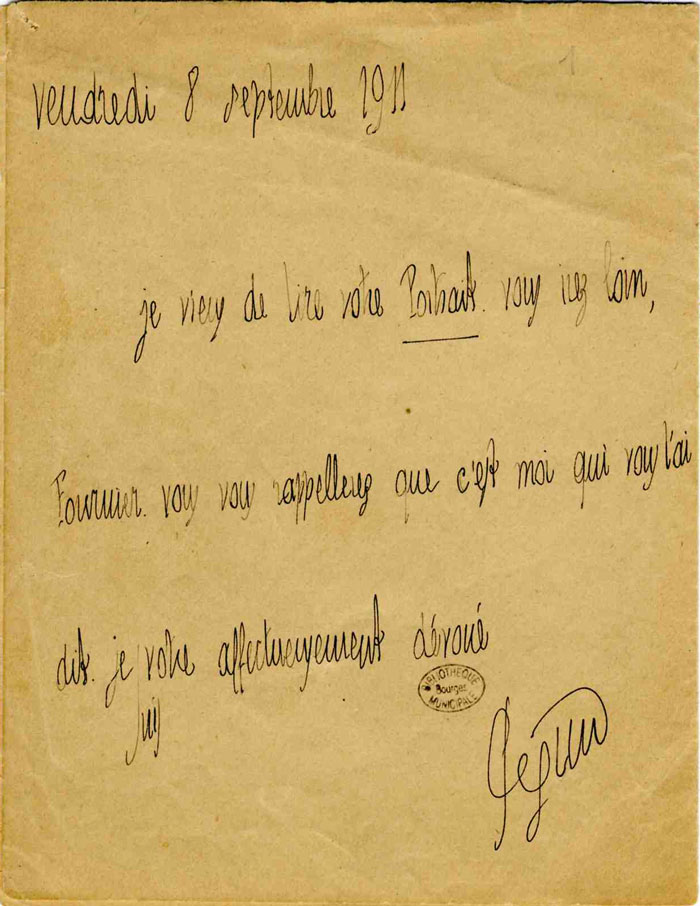 1
vendredi 8 septembre 1911
je viens de lire votre Portrait. vous irez loin,
Fournier. vous vous rappellerez que c'est moi qui vous l'ai
dit. je votre affectueusement dévoué
suis
BIBLIOTHEQUE
Bourges
MUNICIPALE
Péguy